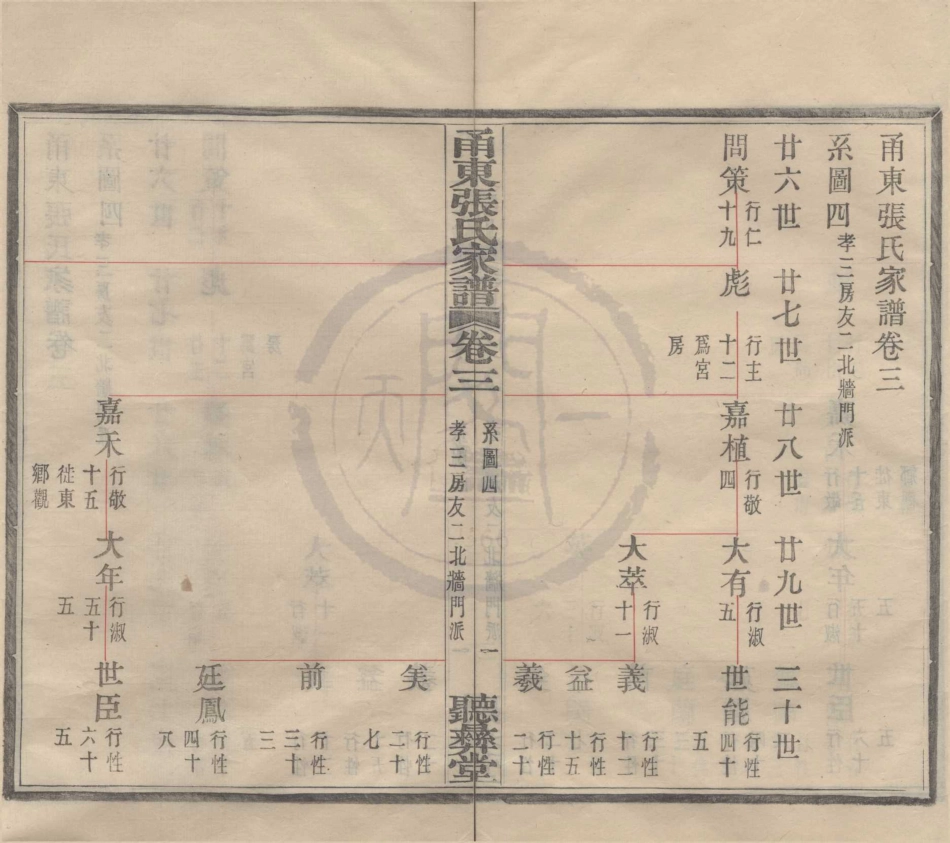 甬東張氏家譜卷三
系圖四 孝三房友二北牆門派
廿六世 廿七世 廿八世 廿九世 三十世
問策 行仁十九
彪 行主十二爲宮房
嘉植 行敬四
大有 行淑五
世能 行性四十五
大萃 行淑十一
義 行性十二
益 行性十五
羲 行性二十
甬東張氏家譜 卷三 系圖四 孝三房友二北牆門派 一 聽彝堂
美 行性二十七
前 行性三十三
廷鳳 行性四十八
嘉禾 行敬十五徙東鄉觀
大年 行淑五十五
世臣 行性六十五